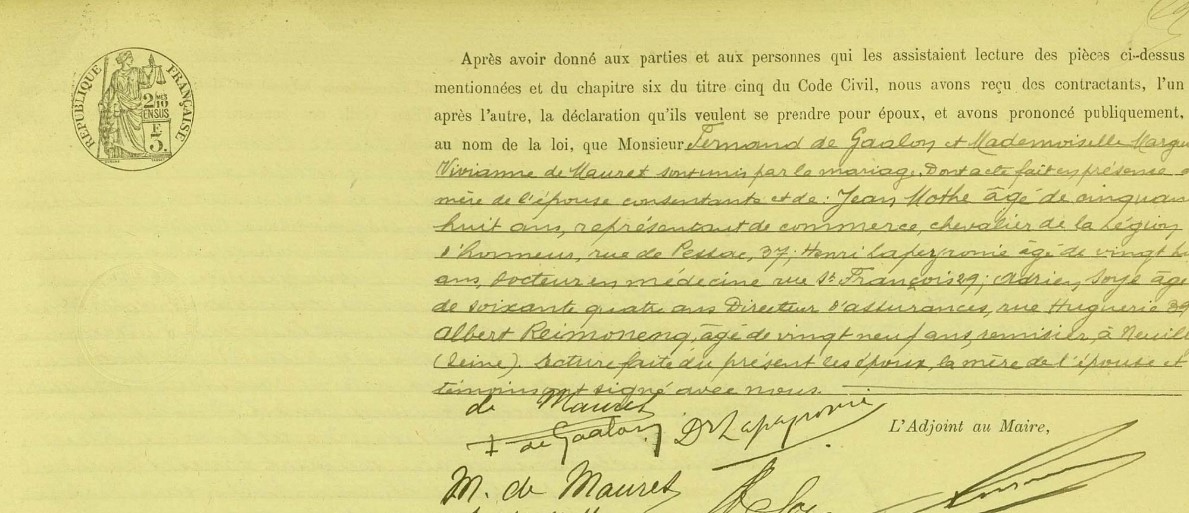 RÉPUBLIQUE FRANÇAISE
2 MES
10
EN SUS
F.
3.
Après avoir donné aux parties et aux personnes qui les assistaient lecture des pièces ci-dessus
mentionnées et du chapitre six du titre cinq du Code Civil, nous avons reçu des contractants, l'un
après l'autre, la déclaration qu'ils veulent se prendre pour époux, et avons prononcé publiquement,
au nom de la loi, que Monsieur Fernand de Gaalon et Mademoiselle Margu
Vivianne de Mauret sont unis par le mariage. Dont acte fait en présence
mère de l'épouse consentante et de: Jean Mothe âgé de cinquan
huit ans, représentant de commerce, chevalier de la Légion
d'honneur, rue de Pessac, 37; Henri Lapeyronie âgé de vingt
ans, docteur en médecine rue St François 29; Adrien Soyé âgé
de soixante quatre ans Directeur d'assurances, rue Huguerie 39
Albert Reimonenq, âgé de vingt neuf ans, remisier, à Neuill
(Seine). Lecture faite du présent les époux, la mère de l'épouse et
témoins ont signé avec nous.
de Mauret
de Gaalon Dr Lapeyronie
L'Adjoint au Maire,
M. de Mauret